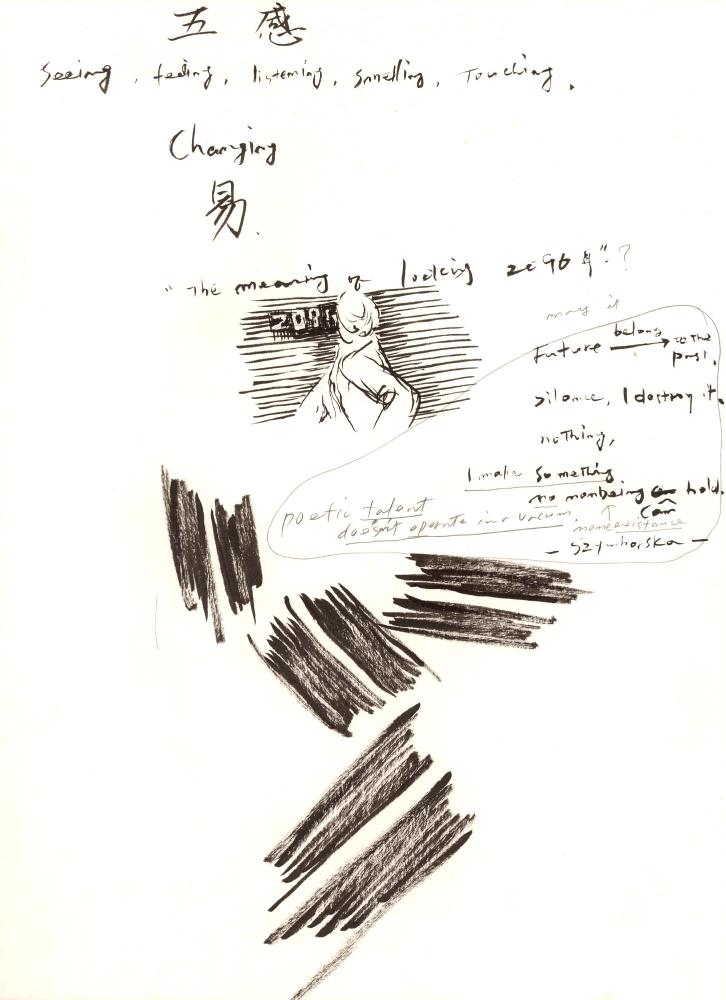 五感
Seeing, feeling, listening, Smelling, Touching.
Changing
易.
"The meaning of looking 2096年"?
may it
future belong to the past.
silence, I destroy it.
nothing,
I make something
no nonbeing can hold.
nonexistance
poetic talent
doesn't operate in a vacuum.
- Szymborska -